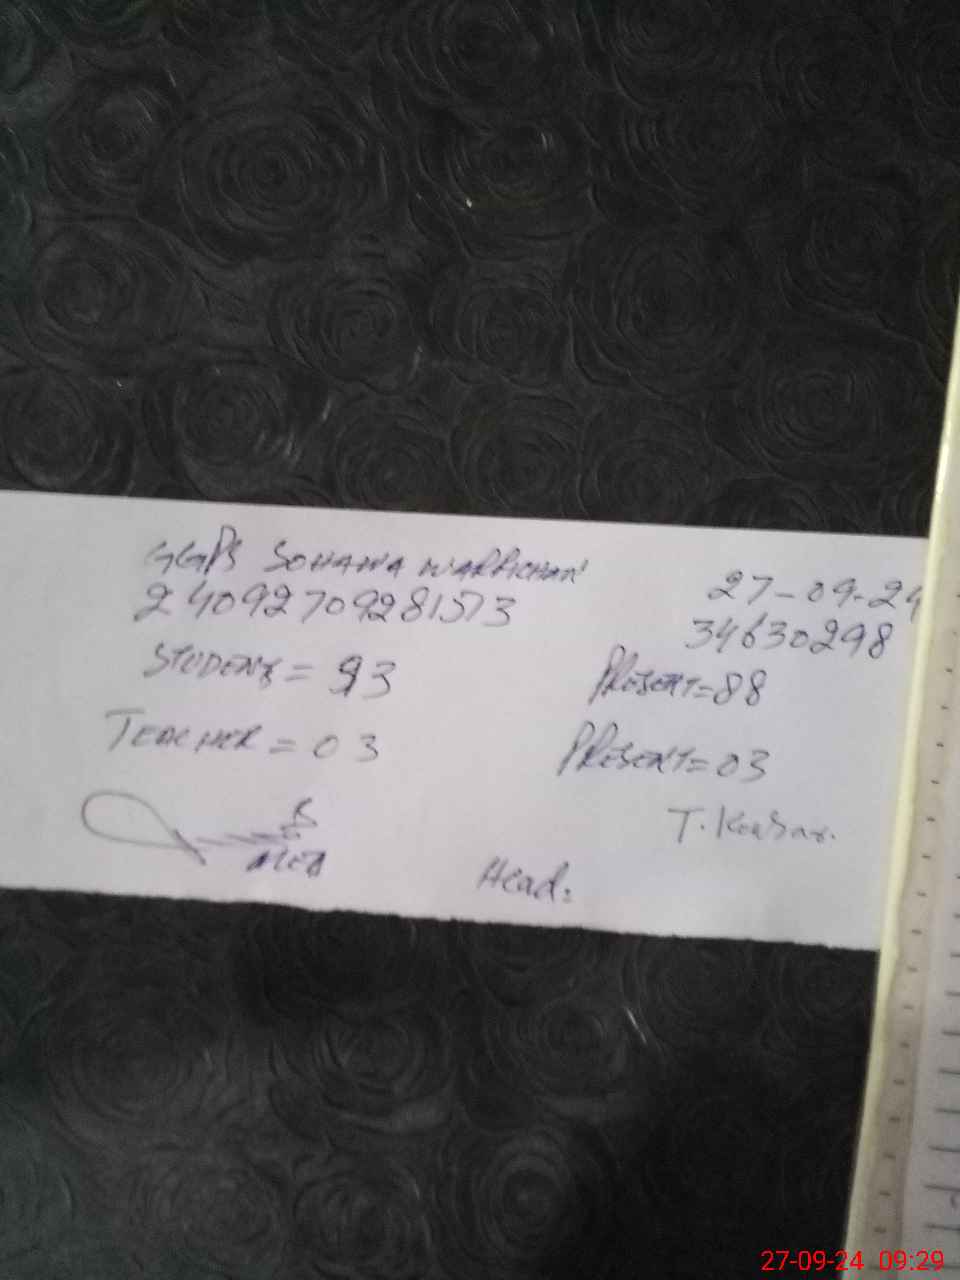 GGPS SOHAWA WARRICHAN 27-09-24
24092709281573 34630298
STUDENTS = 93 PRESENT=88
TEACHER = 03 PRESENT=03
T. Kousar.
Head:
27-09-24 09:29